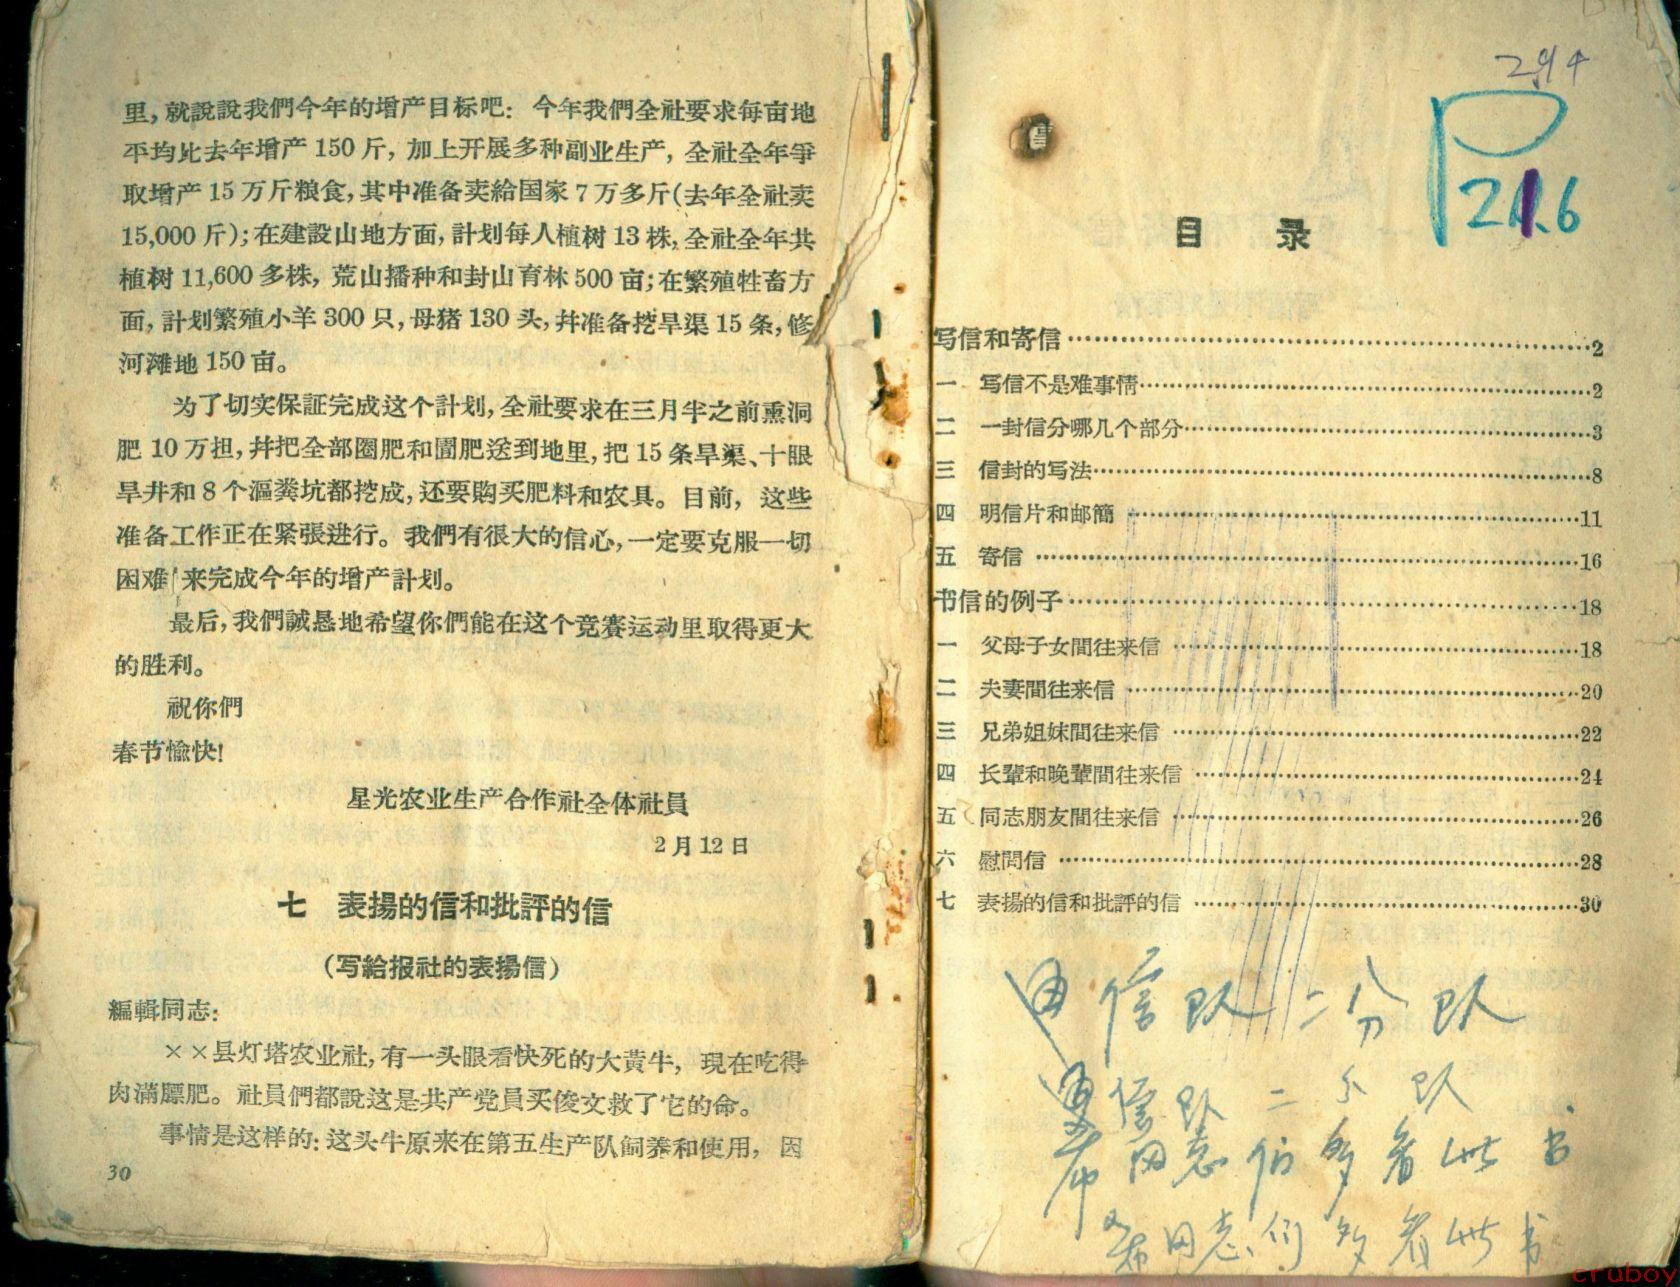 里，就說說我們今年的增产目标吧：今年我們全社要求每亩地
平均比去年增产 150 斤，加上开展多种副业生产，全社全年爭
取增产 15 万斤粮食，其中准备卖給国家 7 万多斤（去年全社卖
15,000 斤）；在建設山地方面，計划每人植树 13 株，全社全年共
植树 11,600 多株，荒山播种和封山育林 500 亩；在繁殖牲畜方
面，計划繁殖小羊 300 只，母猪 130 头，幷准备挖旱渠 15 条，修
河滩地 150 亩。
为了切实保証完成这个計划，全社要求在三月半之前熏洞
肥 10 万担，幷把全部圈肥和圊肥送到地里，把 15 条旱渠、十眼
旱井和 8 个漚粪坑都挖成，还要購买肥料和农具。目前，这些
准备工作正在紧張进行。我們有很大的信心，一定要克服一切
困难 来完成今年的增产計划。
最后，我們誠恳地希望你們能在这个竞賽运动里取得更大
的胜利。
祝你們
春节愉快！
星光农业生产合作社全体社員
2 月 12 日
七　表揚的信和批評的信
（写給报社的表揚信）
編輯同志：
××县灯塔农业社，有一头眼看快死的大黄牛，現在吃得
肉滿膘肥。社員們都說这是共产党員买俊文救了它的命。
事情是这样的：这头牛原来在第五生产队飼养和使用，因
30
294
P
21.6
目　录
写信和寄信……2
一　写信不是难事情……2
二　一封信分哪几个部分……3
三　信封的写法……8
四　明信片和邮简……11
五　寄信……16
书信的例子……18
一　父母子女間往来信……18
二　夫妻間往来信……20
三　兄弟姐妹間往来信……22
四　长輩和晚輩間往来信……24
五　同志朋友間往来信……26
六　慰問信……28
七　表揚的信和批評的信……30
信队二分队
队二分队
希同志们多看此书
希同志们多看此书
cruboy